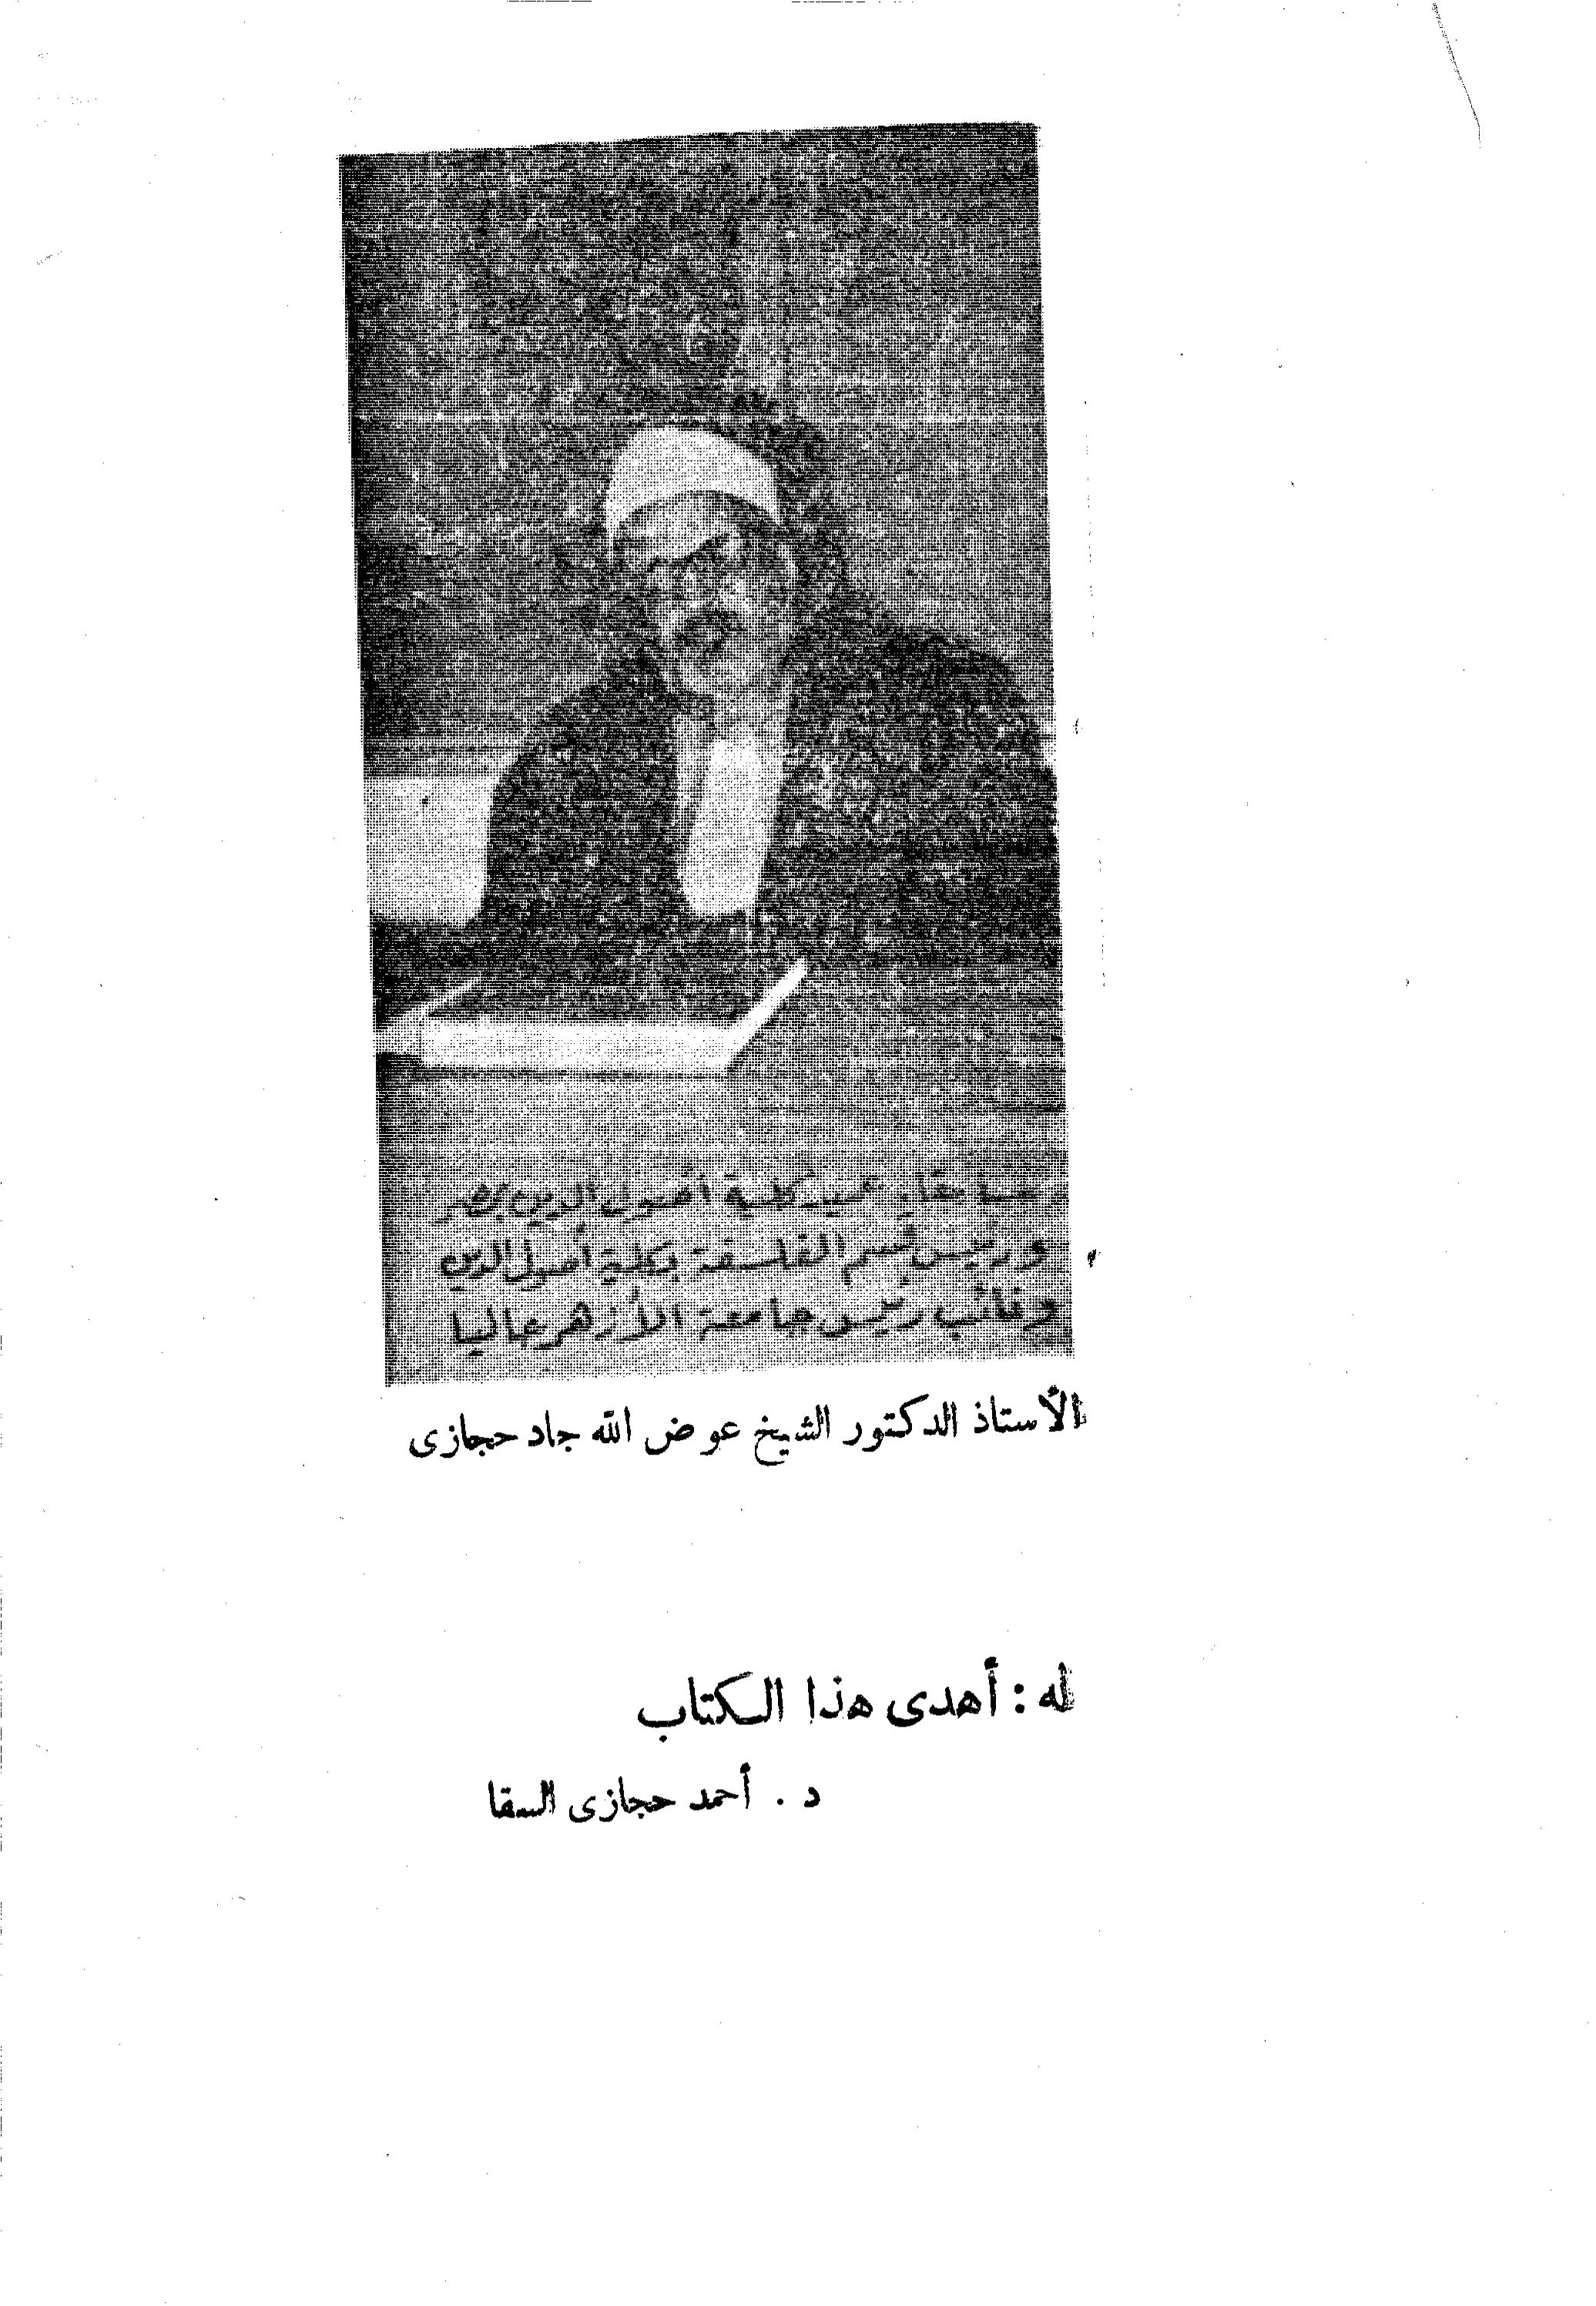 سابقا. عميد كلية أصول الدين بمصر
ورئيس قسم الفلسفة بكلية أصول الدين
ونائب رئيس جامعة الأزهر حاليا
الأستاذ الدكتور الشيخ عوض الله جاد حجازى
له : أهدى هذا الكتاب
د . أحمد حجازى السقا